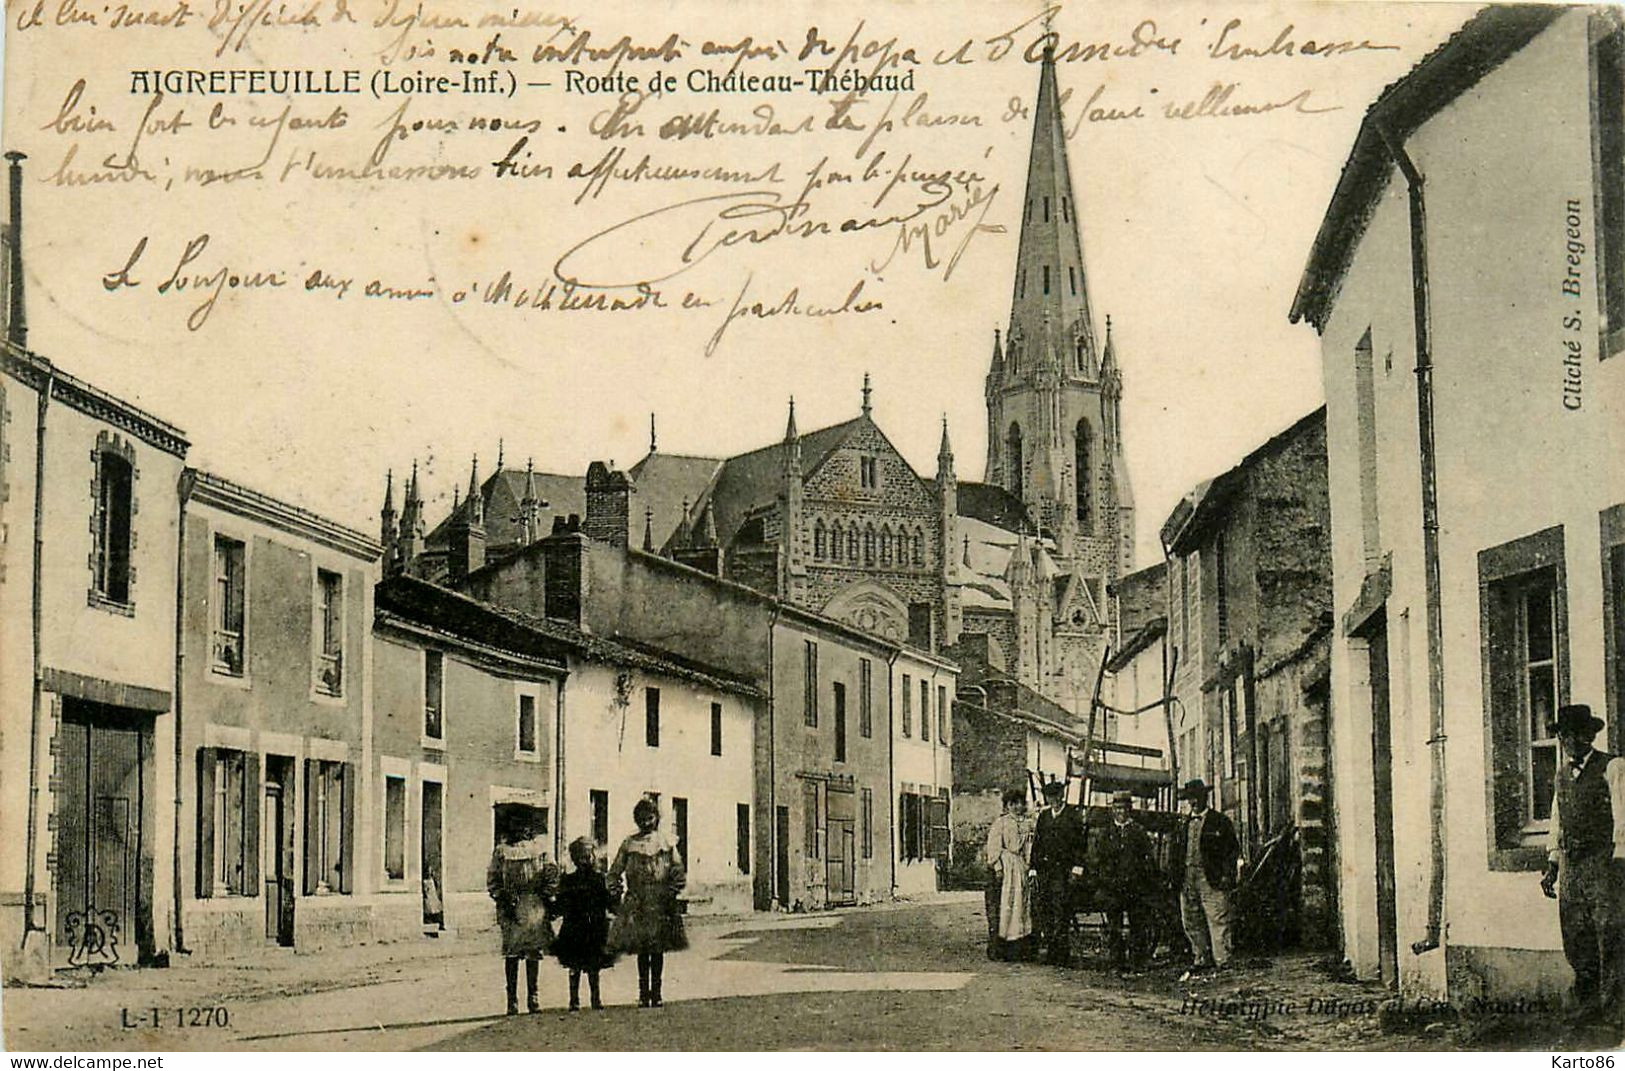 il lui serait difficile de déjeuner mieux
Sois notre interprète auprès de papa et d'Amédée. Embrasse
AIGREFEUILLE (Loire-Inf.) — Route de Château-Thébaud
bien fort les enfants pour nous. En attendant le plaisir de le faire
lundi, nous t'embrassons bien affectueusement par la pensée
Ferdinand
Marie
Le bonjour aux amis à en particulier.
Cliché S. Bregeon
L-I 1270
Héliotypie Dugas et Cie, Nantes
Karto86